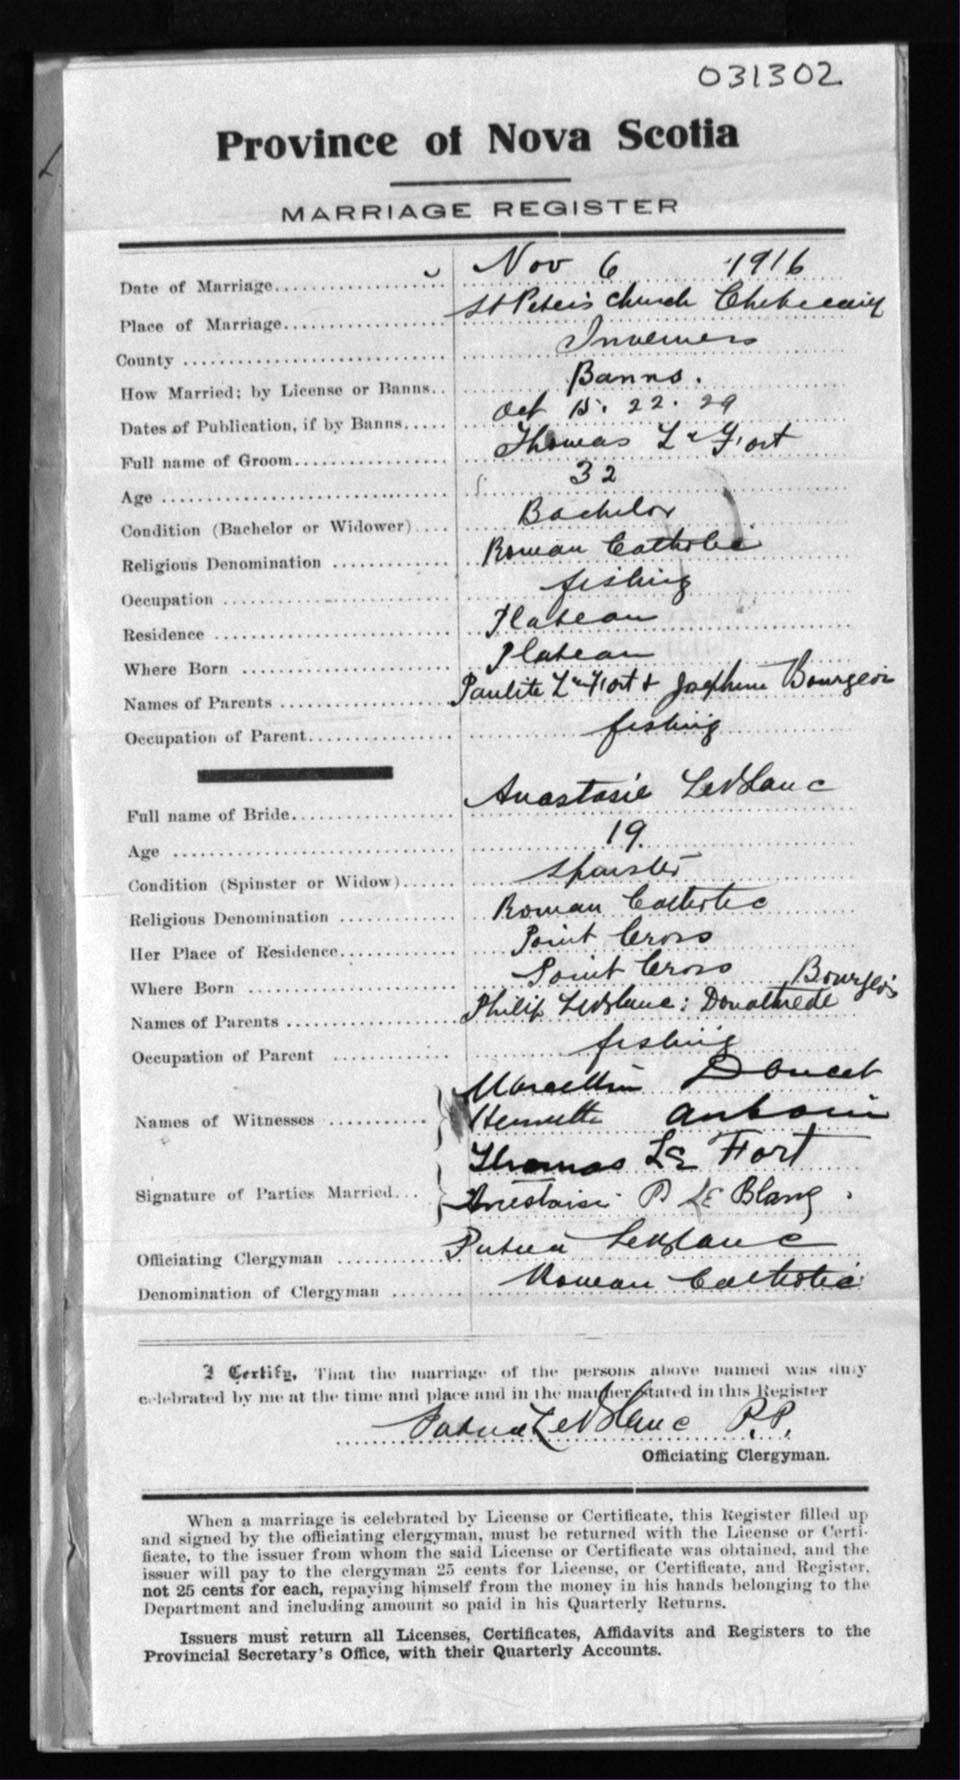 031302
Province of Nova Scotia
MARRIAGE REGISTER
Date of Marriage Nov 6 1916
Place of Marriage St Peter's Church
County Inverness
How Married; by License or Banns Banns.
Dates of Publication, if by Banns Oct 15. 22. 29
Full name of Groom Thomas LeFort
Age 32
Condition (Bachelor or Widower) Bachelor
Religious Denomination Roman Catholic
Occupation fishing
Residence Plateau
Where Born Plateau
Names of Parents Paulite LeFort & Josephine Bourgeois
Occupation of Parent fishing
Full name of Bride Anastasie LeBlanc
Age 19.
Condition (Spinster or Widow) Spinster
Religious Denomination Roman Catholic
Her Place of Residence Point Cross
Where Born Point Cross
Names of Parents Philip LeBlanc: Bourgeois
Occupation of Parent fishing
Names of Witnesses Marcellin Doucet
Henriette
Thomas LE Fort
Signature of Parties Married P LE Blanc.
Officiating Clergyman LeBlanc
Denomination of Clergyman Roman Catholic
I Certify, That the marriage of the persons above named was duly
celebrated by me at the time and place and in the manner stated in this Register
LeBlanc P.P.
Officiating Clergyman.
When a marriage is celebrated by License or Certificate, this Register filled up
and signed by the officiating clergyman, must be returned with the License or Certi-
ficate, to the issuer from whom the said License or Certificate was obtained, and the
issuer will pay to the clergyman 25 cents for License, or Certificate, and Register,
not 25 cents for each, repaying himself from the money in his hands belonging to the
Department and including amount so paid in his Quarterly Returns.
Issuers must return all Licenses, Certificates, Affidavits and Registers to the
Provincial Secretary's Office, with their Quarterly Accounts.